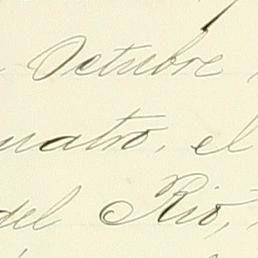 Octubre
uatro, el
del Rio,